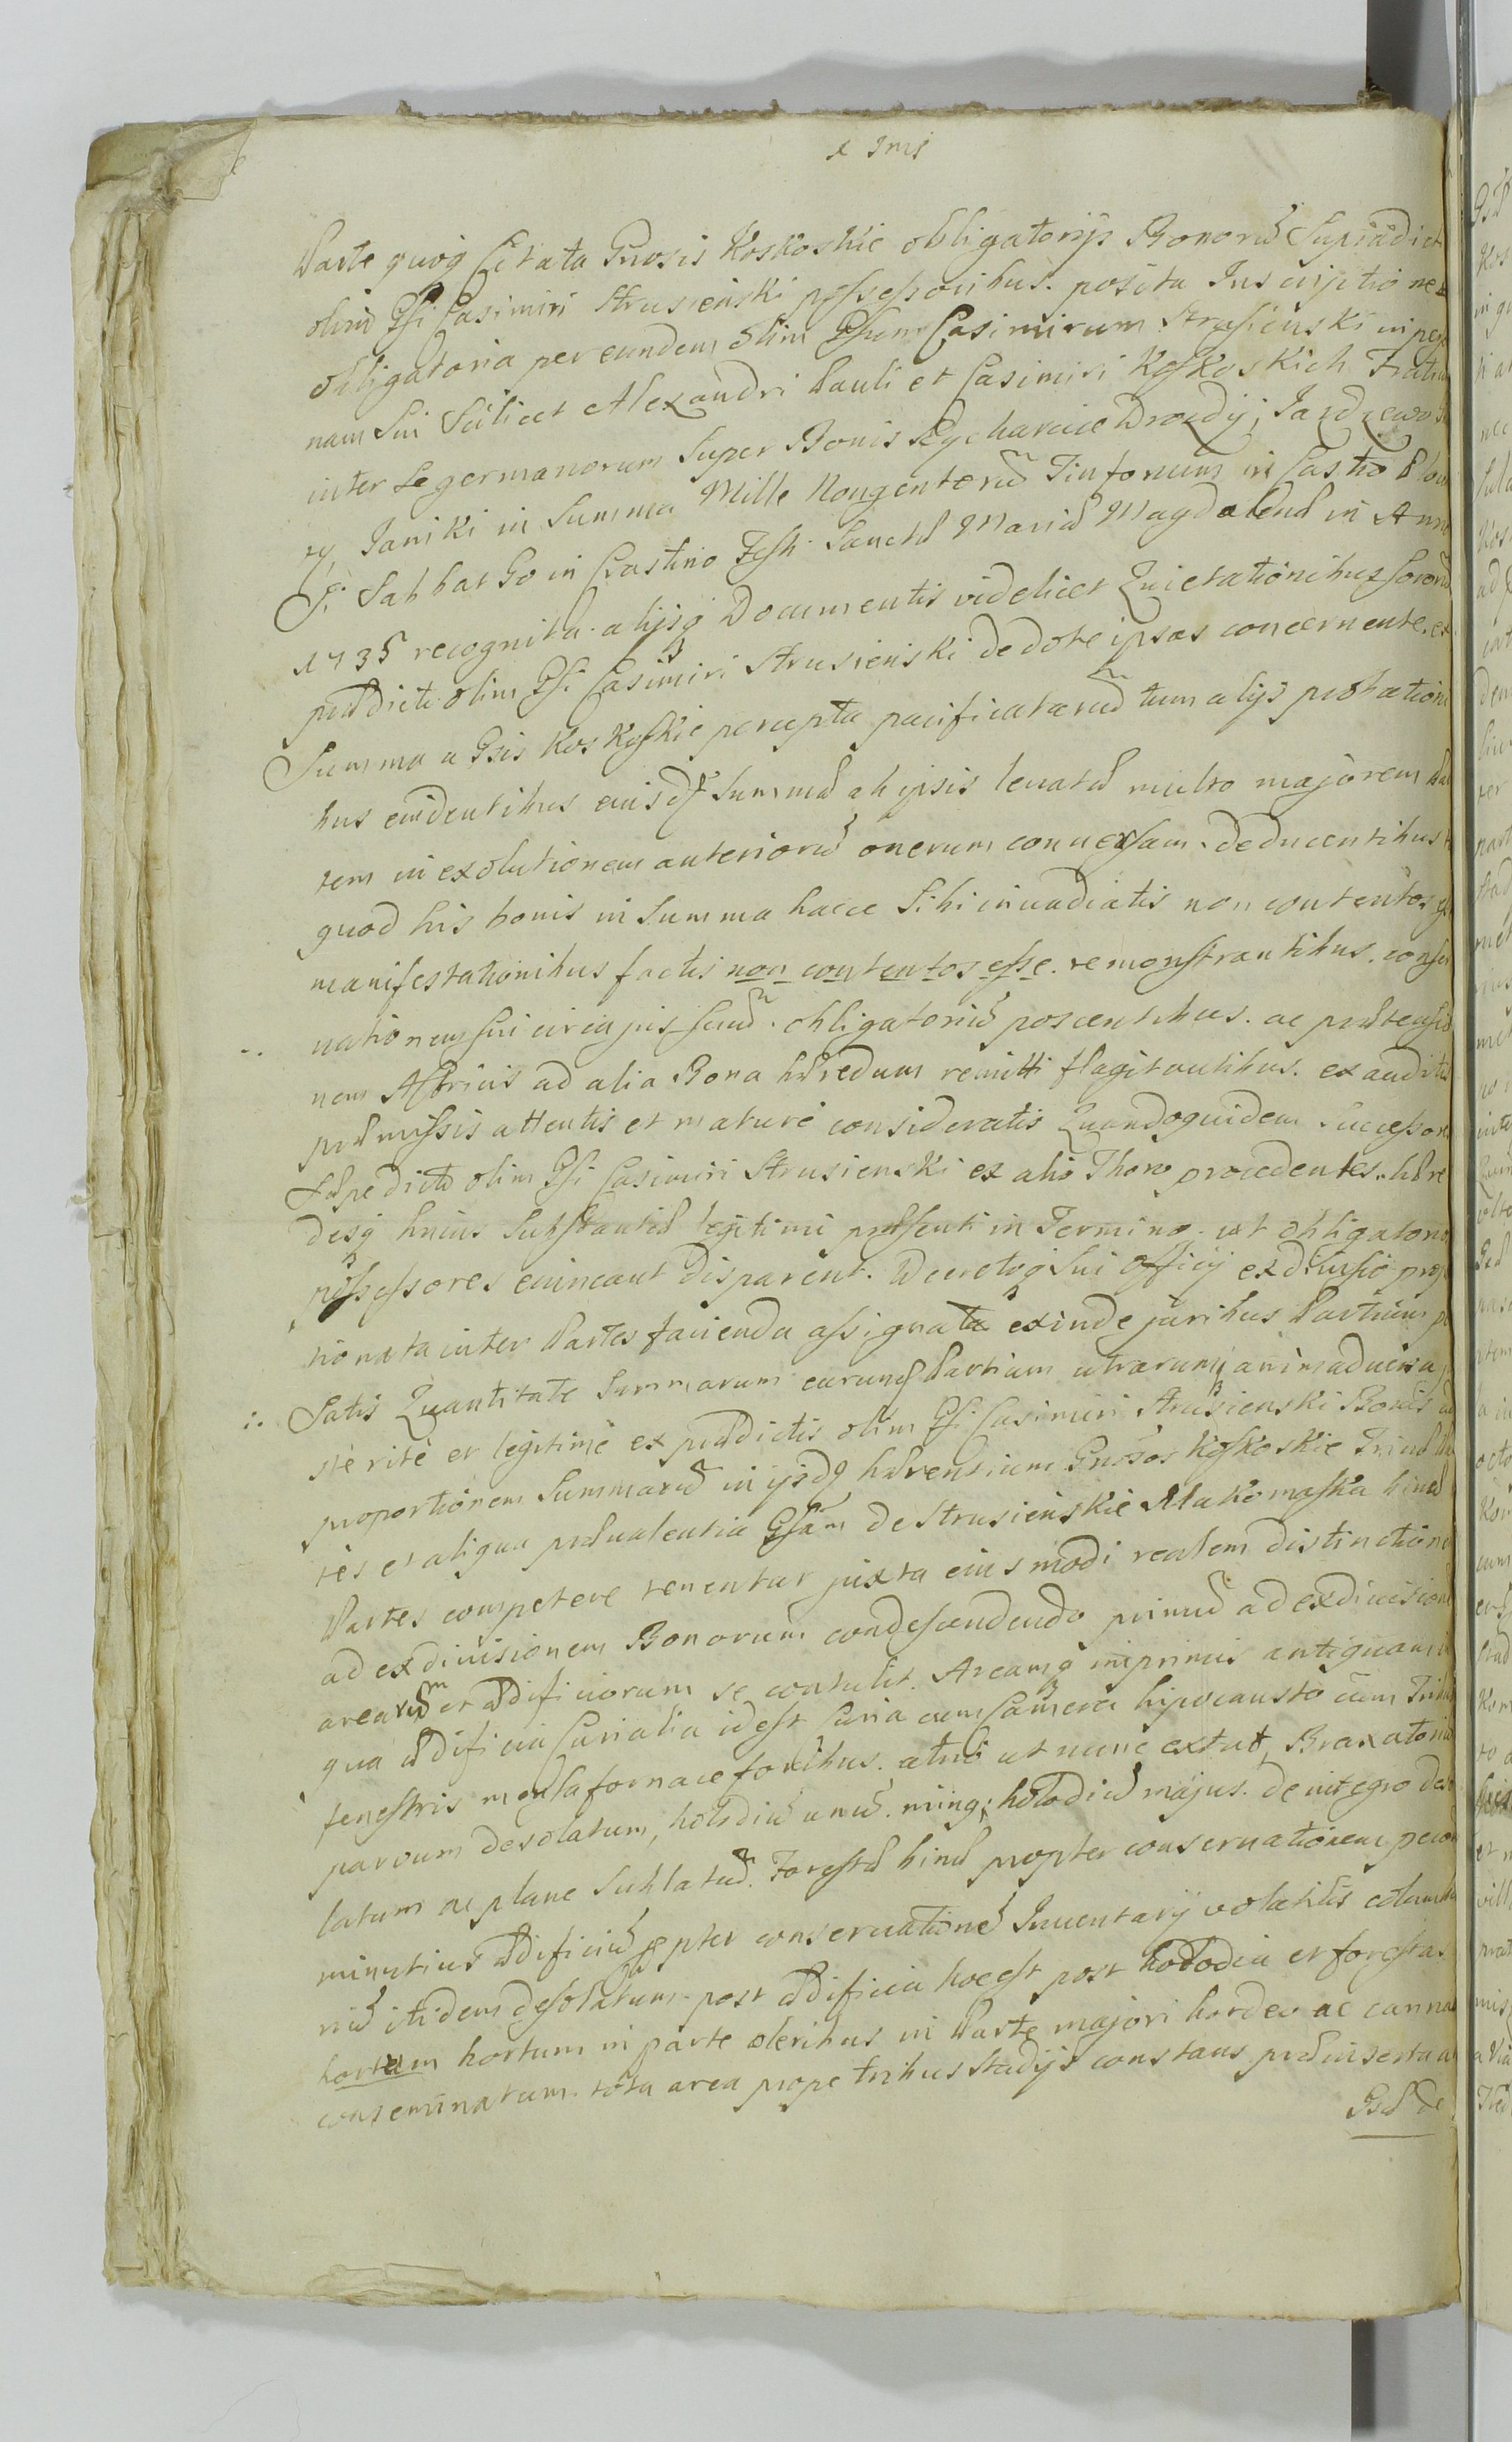 x Imis
Parte quoq Citata Gnosis Koskoskie obligatorijs Bonorum Supradict
olim Gsi Casimiri Strusienski possessoribus. posita Inscriptione
obligatoria per eundem olim Gsum Casimirum Strusienski in perso
nam Sui Scilicet Alexandri Pauli et Casimiri Koskoskich Fratru
inter Se germanorum Super Bonis Rycharcice Drozdij, Jazdzewo
ry Janiki in Summa Mille Nongentoru Tinforum in Castro Plon
F. Sabbatho in Crastino Festi Sanctæ Mariæ Magdalenæ in Anno
1735 recognita. alijsq Documentis videlicet Quietationibus Sororu
prædicti olim Gsi Casimiri Strusienski de dote ipsas concernente. ex
Summa a Gsis Koskoskie percepta pacificataru tum alijs probationi
bus evidentibus eiusd Summæ ab ipsis levatæ multo majorem Par
tem in exolutionem anterioru onerum conversam. deducentibus
quod his bonis in Summa hacce Sibi invadiatis non contentos
manifestationibus factis non contentos esse. remonstrantibus. conser
vationem sui circa jus suu. obligatoriu poscentibus. ac prætensio
nem Actricis ad alia Bona hæredum remitti flagitantibus. exauditis
præmissis attentis et mature consideratis Quandoquidem Successore
Sæpedicti olim Gsi Casimiri Strusienski ex alio Thoro procedentes. hære
desq huius Substantiæ legitimi præsenti in Termino. ut obligatorios
possessores evincant disparent. Decretoq Sui Officij exdivisio propor
tionata inter Partes facienda assignata exinde juribus Partium
Satis Quantitate Summarum earund Partium utrarumq animadversa
ste rite et legitime ex prædictis olim Gsi Casimiri Strusienski Bonis ad
proportionem Summaru in ijsdq hærentium Gnosos Koskoskie Trinæ Par
tes et aliqua prævalentia Gsam de Strusienskie Mlakomaska binæ
Partes competere tenentur juxta eiusmodi realem distinctione
ad exdivisionem Bonorum condescendendo primu ad exdivisione
arearum et ædificiorum se contulit. Areamq inprimis antiquam in
qua ædificia Curialia idest Curia cum Camera hipocausto cum Tribus
fenestris mensa fornace foribus. atrio ut nunc extat, Braxatoriu
parvum desolatum, holodiu unu. minq; holodiu majus. de integro deso
latum ac plane Sublatu. Forestæ binæ propter conservationem pecor
minutius ædificiu ppter conservatione Inventarij volatilis columba
riu itidem desolatum post ædificia hoc est post holodia et forestas
hortum hortum in parte oleribus in Parte majori hordeo ac canna
conseminatum. tota area prope tribus Stadijs constans. præinserta
Gsæ de